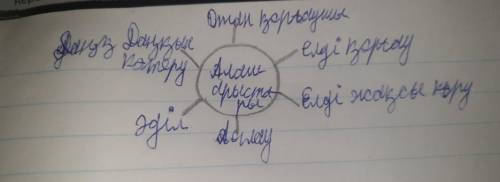 Отан қорғаушы
Даңқ Даңқын
көтеру
Елді қорғау
Алаш
арыста-
ры
Елді жақсы көру
Әділ
Ақтау